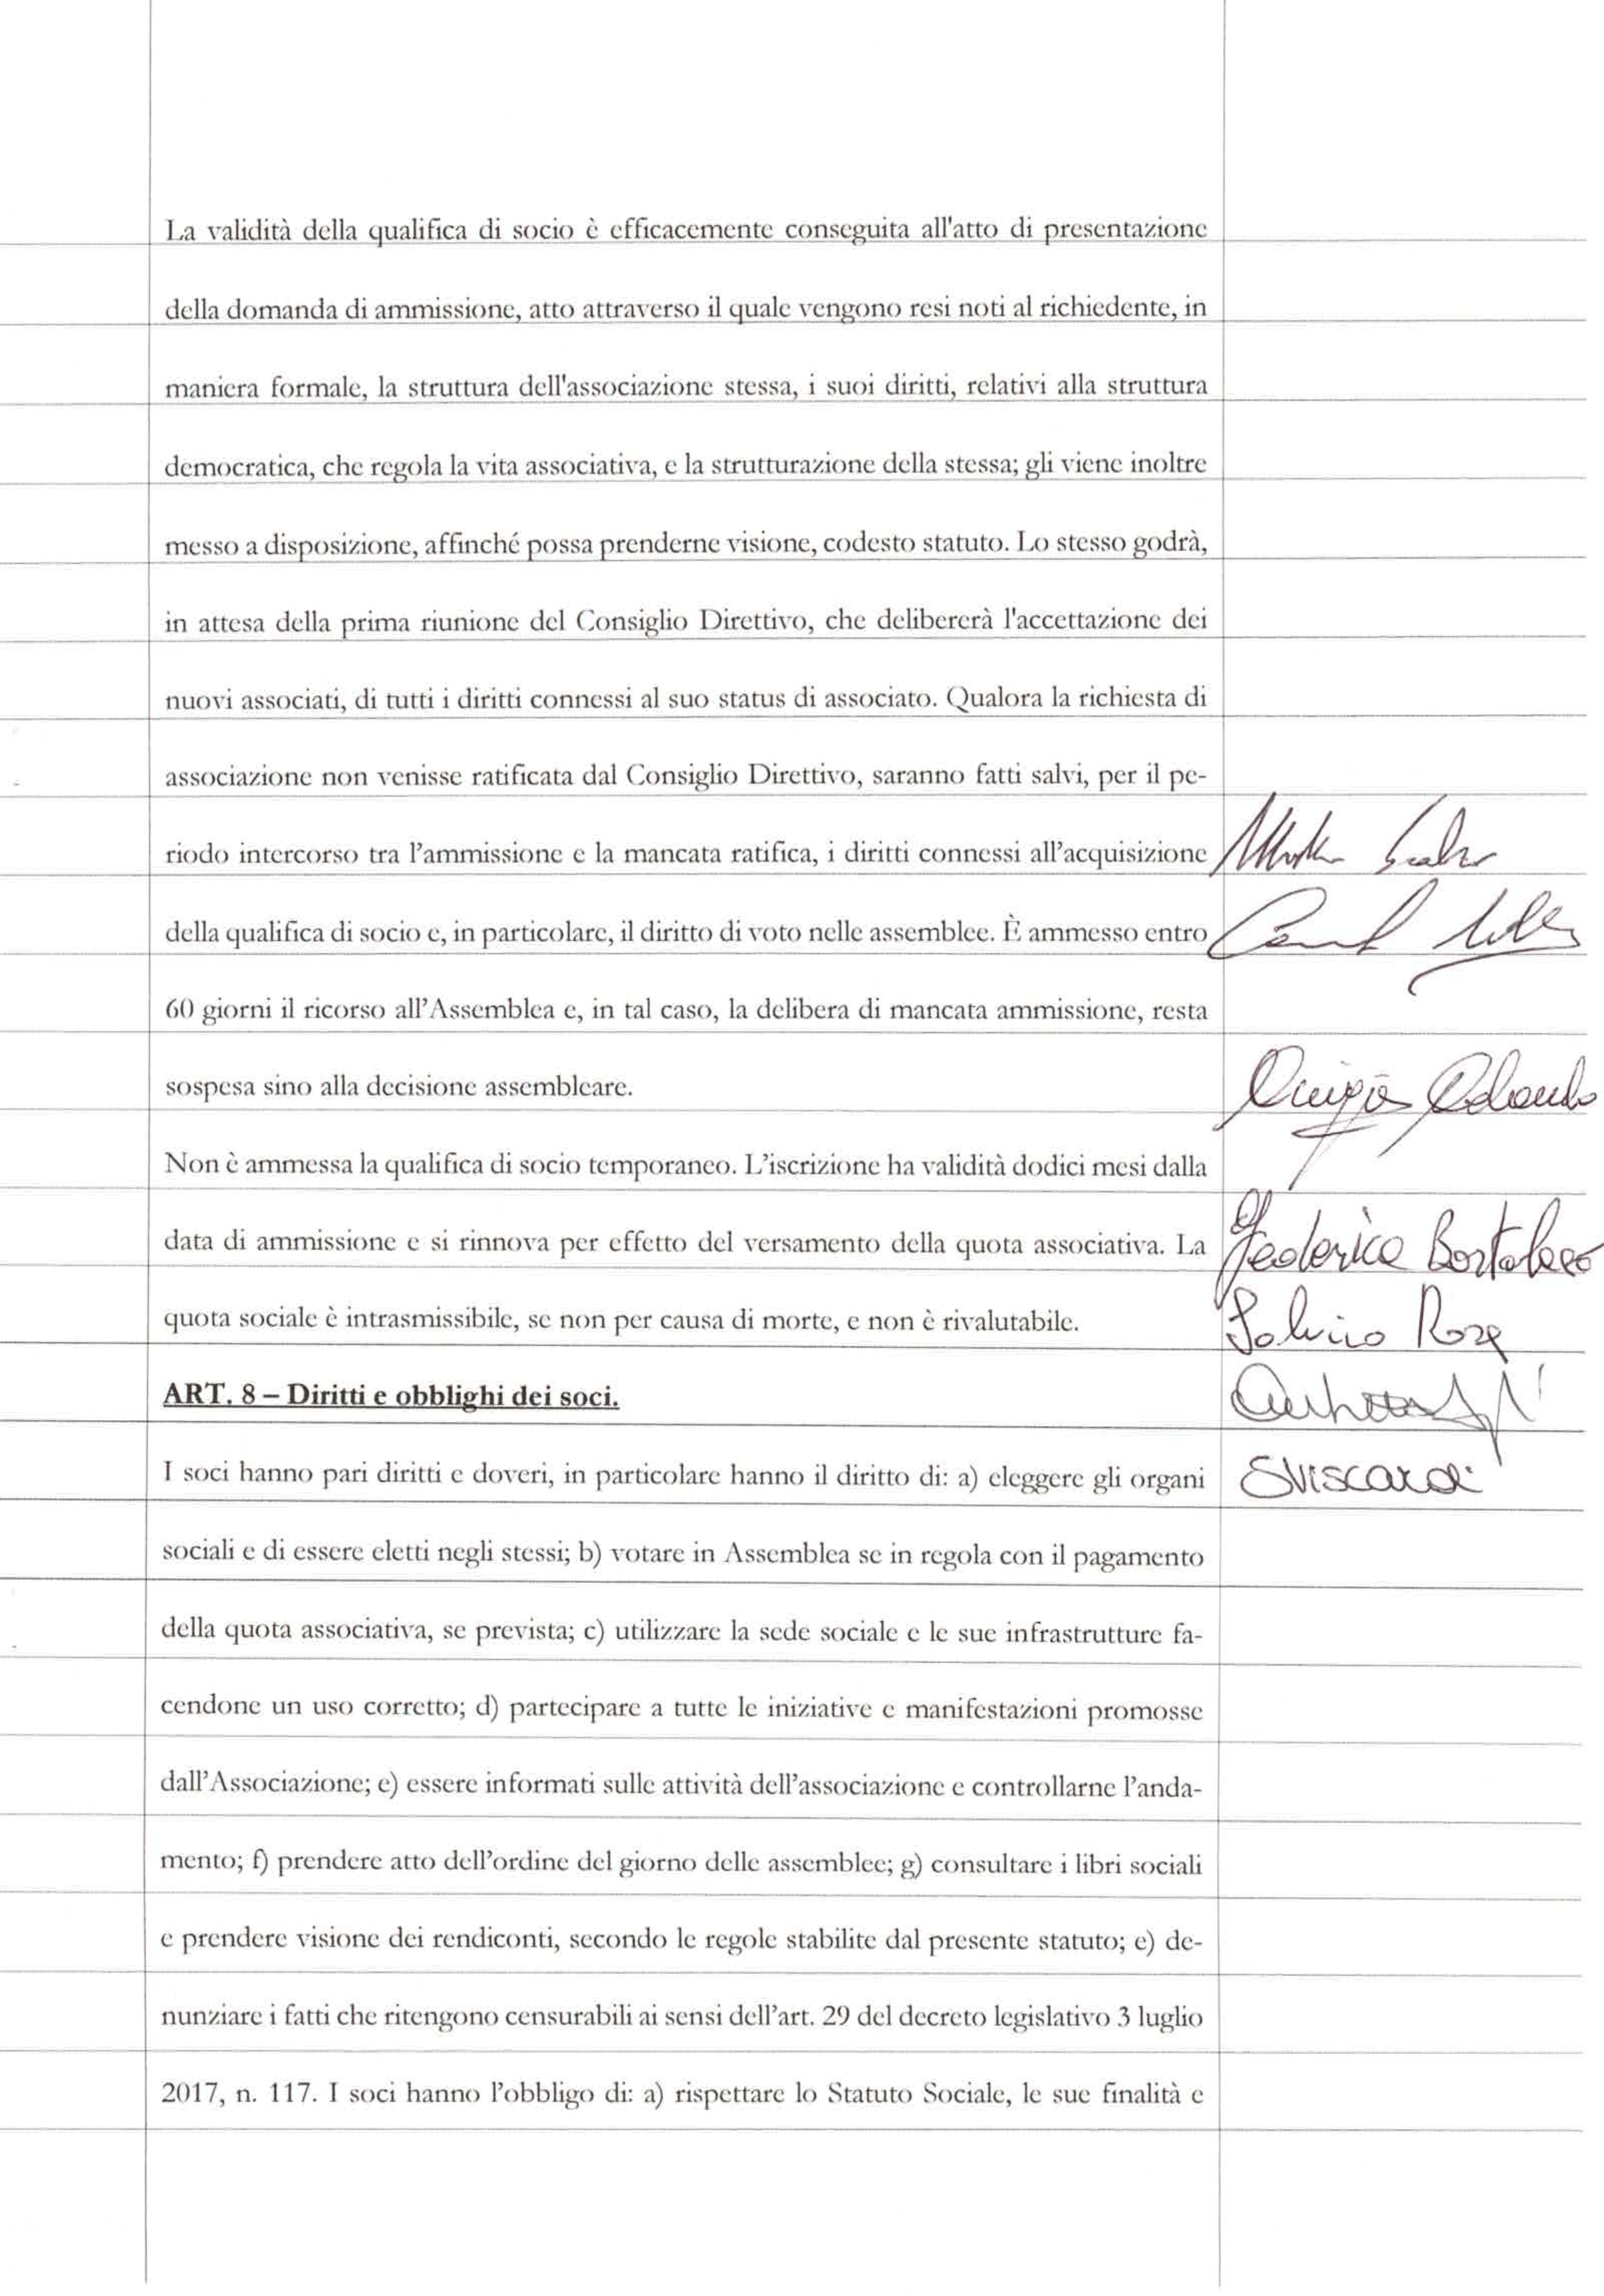 La validità della qualifica di socio è efficacemente conseguita all'atto di presentazione
della domanda di ammissione, atto attraverso il quale vengono resi noti al richiedente, in
maniera formale, la struttura dell'associazione stessa, i suoi diritti, relativi alla struttura
democratica, che regola la vita associativa, e la strutturazione della stessa; gli viene inoltre
messo a disposizione, affinché possa prenderne visione, codesto statuto. Lo stesso godrà,
in attesa della prima riunione del Consiglio Direttivo, che delibererà l'accettazione dei
nuovi associati, di tutti i diritti connessi al suo status di associato. Qualora la richiesta di
associazione non venisse ratificata dal Consiglio Direttivo, saranno fatti salvi, per il pe-
riodo intercorso tra l’ammissione e la mancata ratifica, i diritti connessi all’acquisizione
della qualifica di socio e, in particolare, il diritto di voto nelle assemblee. È ammesso entro
60 giorni il ricorso all’Assemblea e, in tal caso, la delibera di mancata ammissione, resta
sospesa sino alla decisione assembleare.
Non è ammessa la qualifica di socio temporaneo. L’iscrizione ha validità dodici mesi dalla
data di ammissione e si rinnova per effetto del versamento della quota associativa. La
Federica
quota sociale è intrasmissibile, se non per causa di morte, e non è rivalutabile.
ART. 8 – Diritti e obblighi dei soci.
I soci hanno pari diritti e doveri, in particolare hanno il diritto di: a) eleggere gli organi
SViscardi
sociali e di essere eletti negli stessi; b) votare in Assemblea se in regola con il pagamento
della quota associativa, se prevista; c) utilizzare la sede sociale e le sue infrastrutture fa-
cendone un uso corretto; d) partecipare a tutte le iniziative e manifestazioni promosse
dall’Associazione; e) essere informati sulle attività dell’associazione e controllarne l’anda-
mento; f) prendere atto dell’ordine del giorno delle assemblee; g) consultare i libri sociali
e prendere visione dei rendiconti, secondo le regole stabilite dal presente statuto; e) de-
nunziare i fatti che ritengono censurabili ai sensi dell’art. 29 del decreto legislativo 3 luglio
2017, n. 117. I soci hanno l’obbligo di: a) rispettare lo Statuto Sociale, le sue finalità e